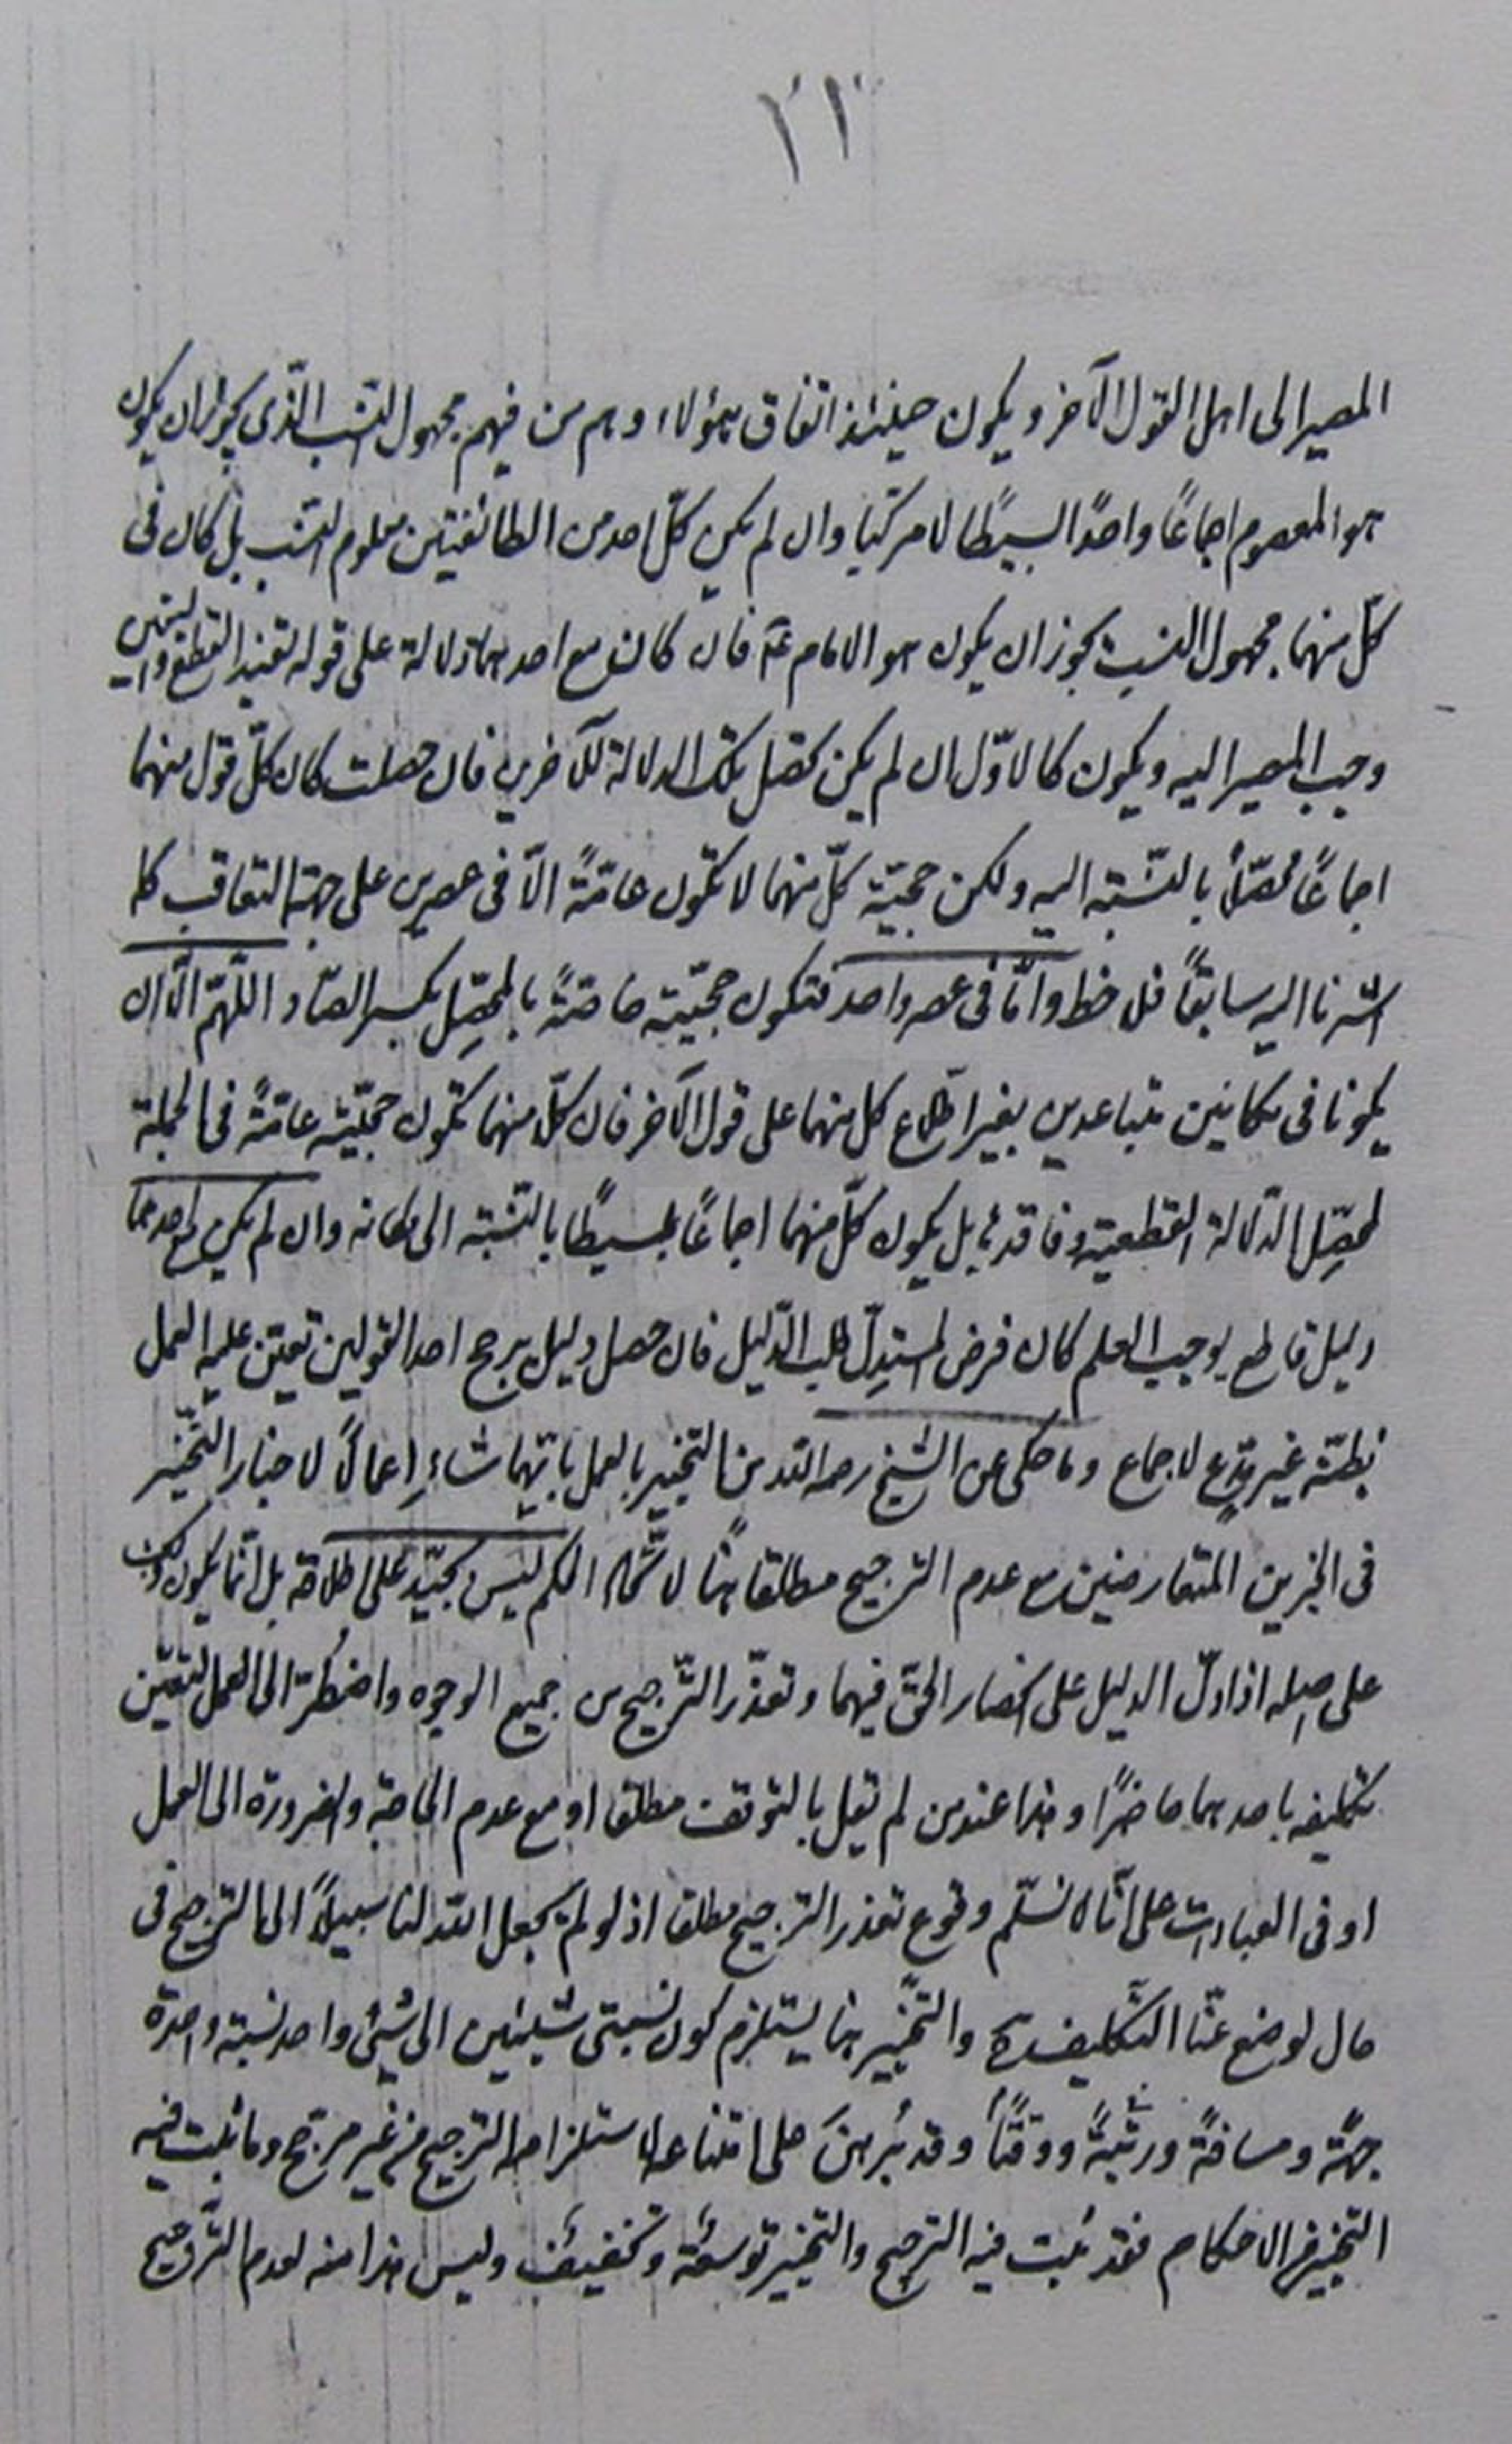 المصير الى اهل القول الآخر ويكون حينئذ اتفاق هؤلاء وهم من فيهم مجهول النّسب الّذى يجوز ان يكون
هو المعصوم اجماعًا واحدًا بسيطًا لا مركبًا وان لم يكن كلّ احد من الطائفتين معلوم النّسب بل كان فى
كلّ منهما مجهول النسب يجوز ان يكون هو الامام عَ فان كان مع احدهما دلالة على قوله تفيد القطع واليقين
وجب المصير اليه ويكون كالاوّل ان لم يكن تحصل تلك الدلالة للآخرين فان حصلت كان كلّ قول منهما
اجماعًا محصّلًا بالنّسبة اليه ولكن حجيّة كلّ منهما لا تكون عامّةً الّا فى عصرين على جهة التعاقب كما
اشرنا اليه سابقًا فلاحظ وامّا فى عصر واحد فتكون حجيّته خاصّةً بالمحصِّل بكسر الصّاد اللّهمّ الّا ان
يكونا فى مكانين متباعدين بغير اطّلاع كل منهما على قول الآخر فان كلّا منهما تكون حجيّته عامّةً فى الجملة
لمحصِّل الدّلالة القطعية وفاقدها بل يكون كلّ منهما اجماعًا بسيطًا بالنّسبة الى مكانه وان لم يكن لاحدهما
دليل قاطع يوجب العلم كان فرض المستدِلّ طلب الدّليل فان حصل دليل يرجح احد القولين تعيّن عليه العمل
بظنّه غير مدّعٍ لاجماع وما حكى عن الشيخ رحمه الله من التخيير بالعمل بايّهما شاءِ اعمالًا لاخبار التّخيير
فى الخبرين المتعارضين مع عدم الترجيح مطلقا هنا الحكم ليس بجيّد على اطلاقه بل انّما يكون ذلك
على اصله اذا دلّ الدليل على انحصار الحقّ فيهما وتعذّر التّرجيح من جميع الوجوه واضطُرّ الى العمل لتعيّن
تكليفه باحدهما حاضرًا وهذا عند من لم يقل بالتوقف مطلقا او مع عدم الحاجة والضرورة الى العمل
او فى العبادات على انّا لا نسلّم وقوع تعذر الترجيح مطلقا اذ لو لم يجعل الله لنا سبيلًا الى الترجيح فى
حال لوضع عنّا التّكليف ح والتّخيير هنا يستلزم كون نسبتى شيئين الى شيئ واحد نسبة واحدة
جهةً ومسافةً ورتبةً ووقتًا وقد بُرهنَ على امتناعه لاستلزامه الترجيح من غير مرجح وما ثبت فيه
التخيير فى الاحكام فقد ثبت فيه الترجيح والتخيير توسعة وتخفيف وليس هذا منه لعدم التّرجيح